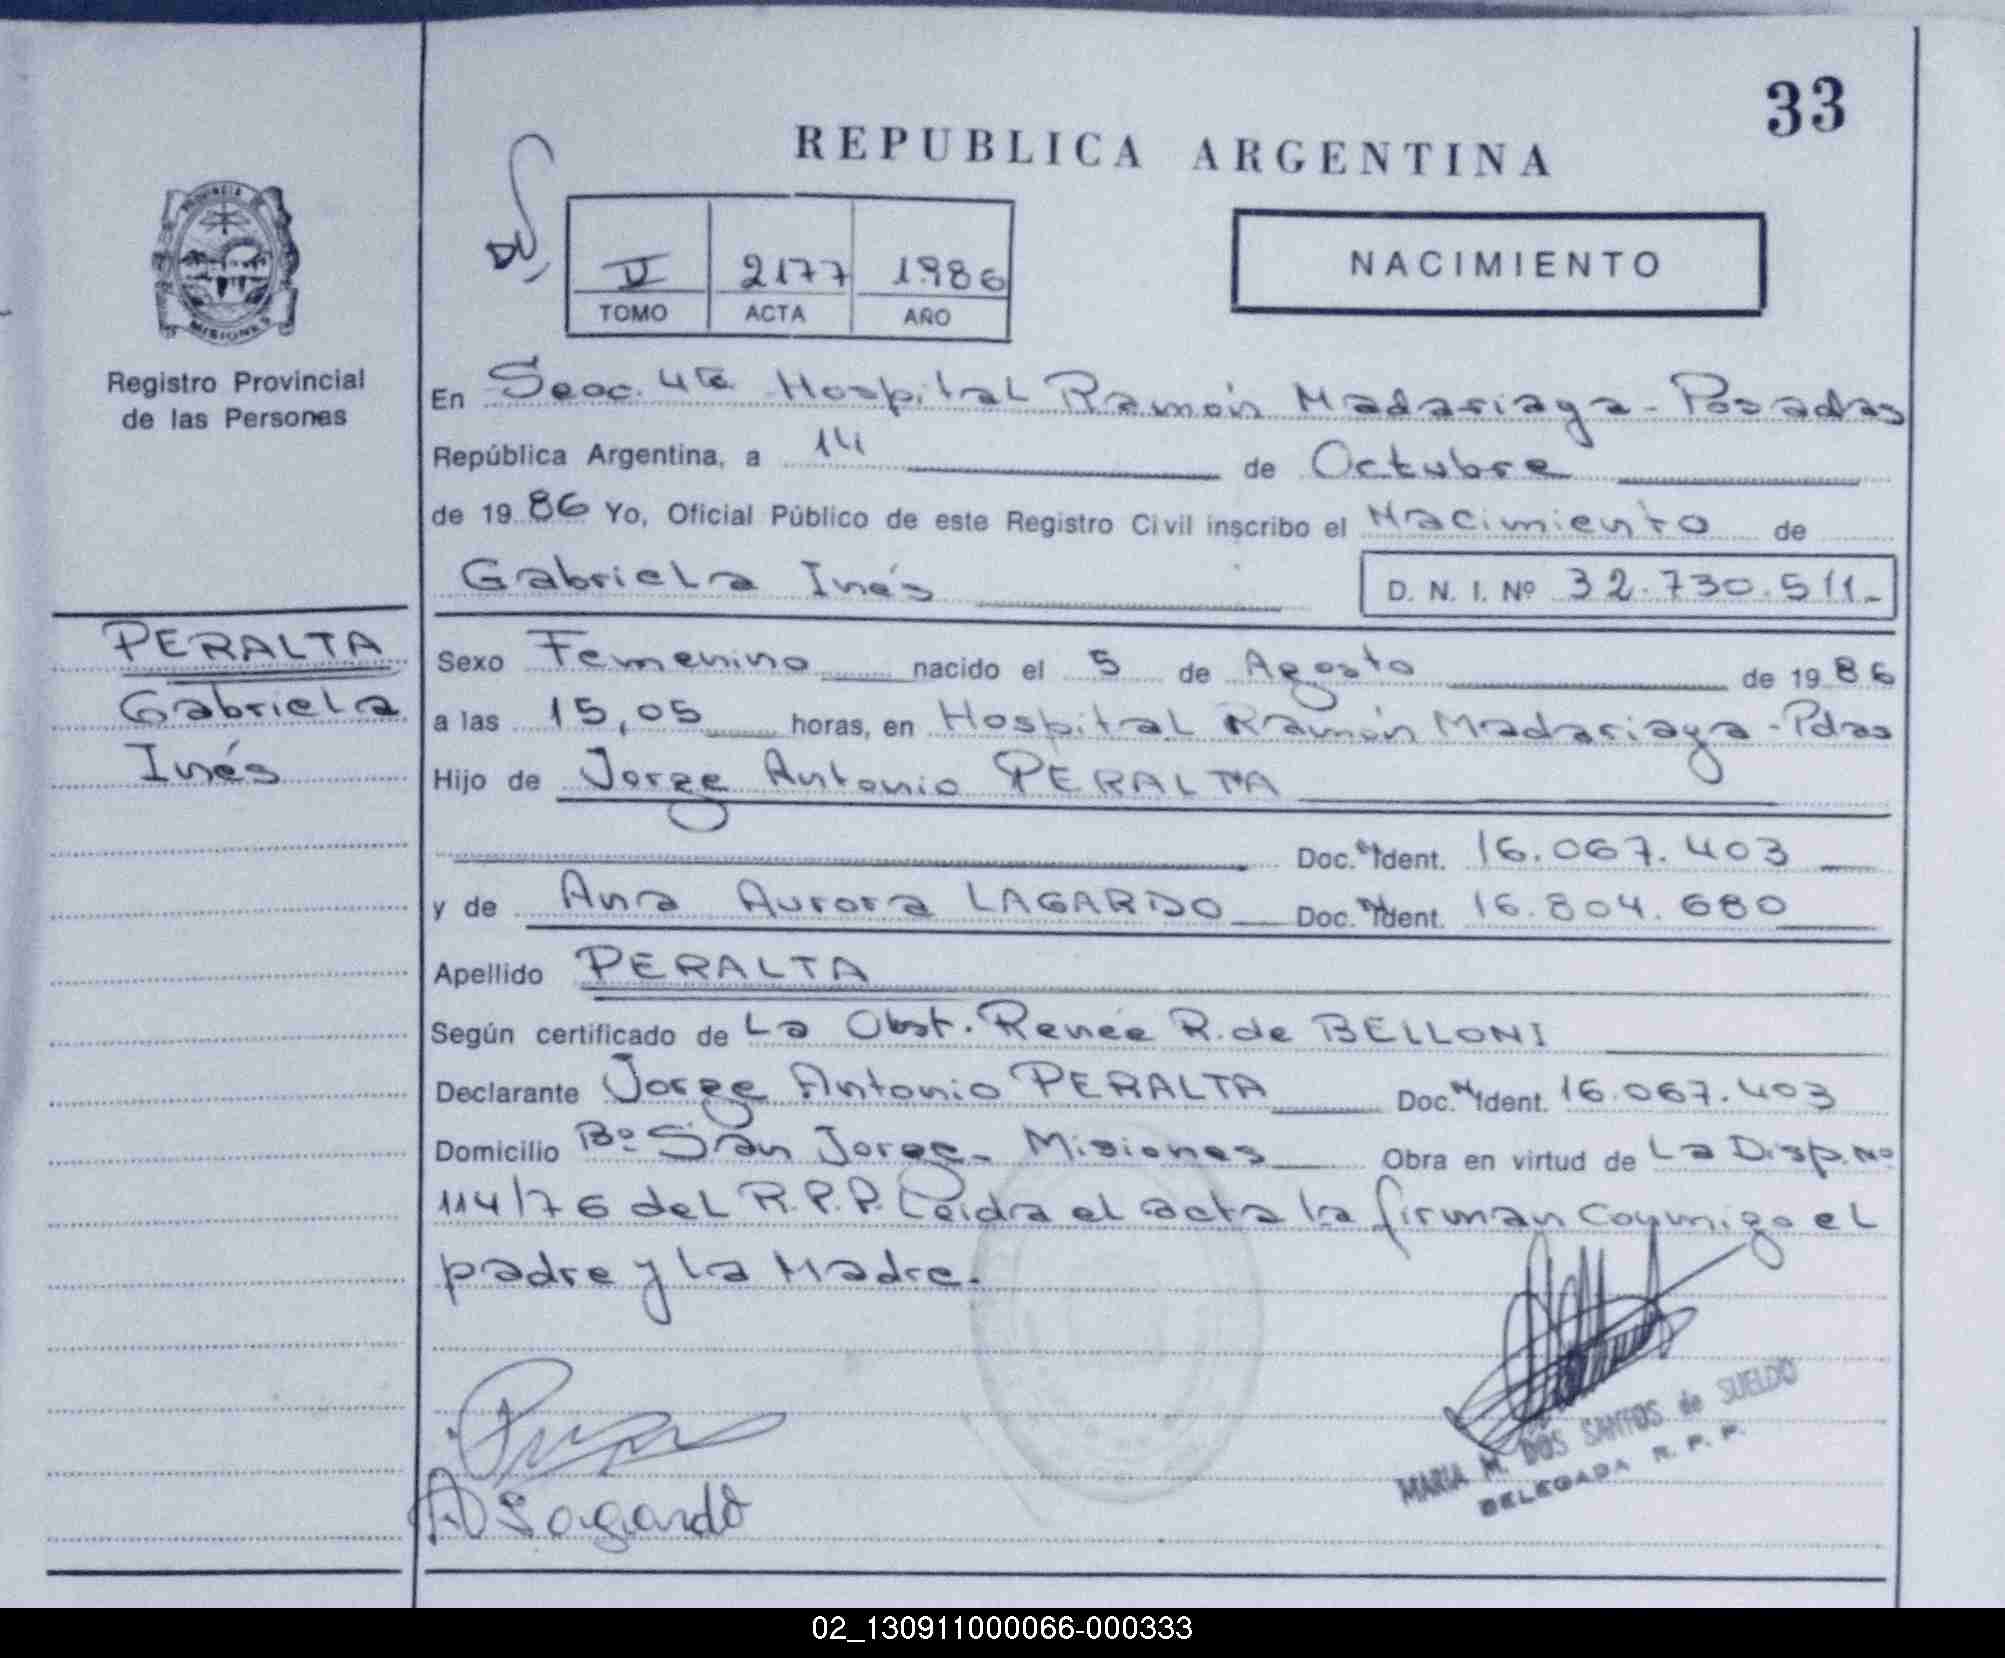 33
REPUBLICA ARGENTINA
PROVINCIA DE
MISIONES
NACIMIENTO
II 2177 1986
TOMO ACTA AÑO
Registro Provincial
de las Personas
En Secc. 4ta Hospital Ramón Madariaga - Posadas
República Argentina, a 14 de Octubre
de 1986 Yo, Oficial Público de este Registro Civil inscribo el Nacimiento de
Gabriela Inés D. N. I. Nº 32.730.511.-
PERALTA
Gabriela
Inés
Sexo Femenino nacido el 5 de Agosto de 1986
a las 15,05 horas, en Hospital Ramón Madariaga - Pdas
Hijo de Jorge Antonio PERALTA
Doc. Ident. 16.067.403
y de Ana Aurora LAGARDO Doc. Ident. 16.804.680
Apellido PERALTA
Según certificado de La Obst. Renée R. de BELLONI
Declarante Jorge Antonio PERALTA Doc. Ident. 16.067.403
Domicilio Bº San Jorge - Misiones Obra en virtud de La Disp. Nº
114/76 del R.P.P. Leida el acta la firman conmigo el
padre y la Madre.
MARIA M. DOS SANTOS de SUELDO
DELEGADA R. P. P.
A Lagardo
02_130911000066-000333